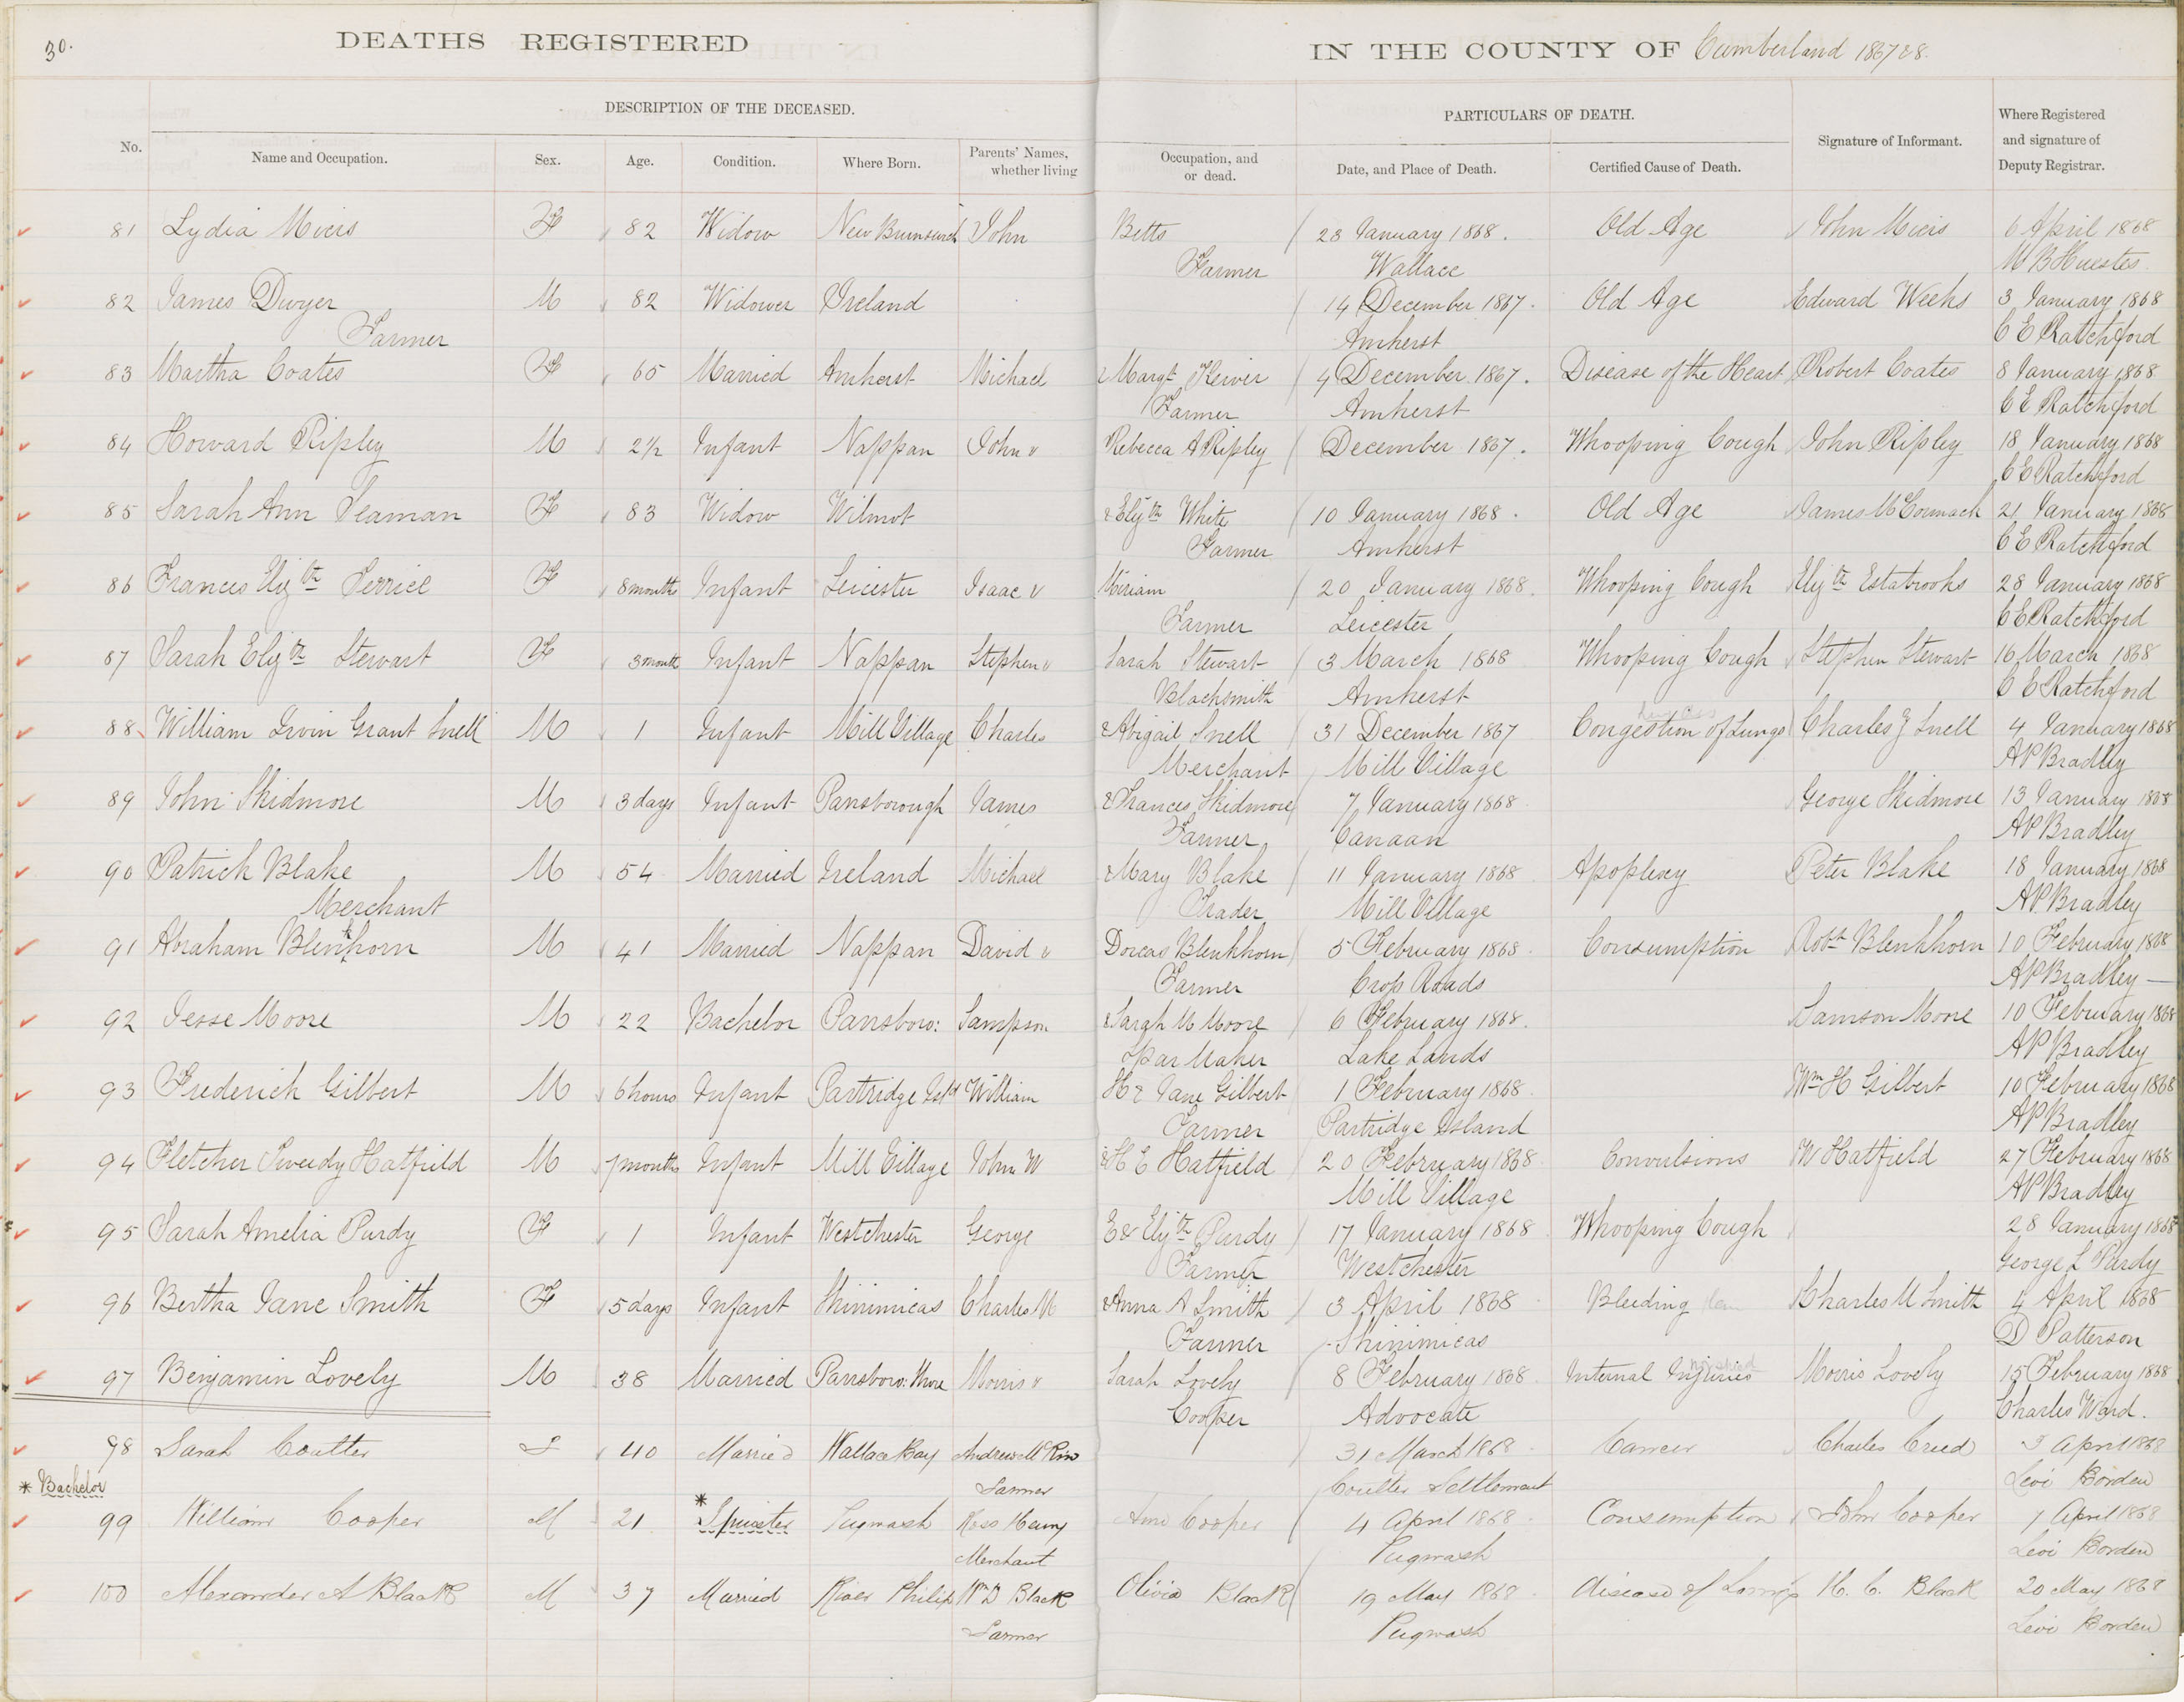 30.
DEATHS REGISTERED IN THE COUNTY OF Cumberland 1867 & 8.
DESCRIPTION OF THE DECEASED. PARTICULARS OF DEATH.
No. Name and Occupation. Sex. Age. Condition. Where Born. Parents' Names, whether living Occupation, and or dead. Date, and Place of Death. Certified Cause of Death. Signature of Informant. Where Registered and signature of Deputy Registrar.
81 Lydia Miers F 82 Widow New Brunswick John Betts 28 January 1868. Old Age John Miers 6 April 1868
Farmer Wallace M B Huestes
82 James Dwyer M 82 Widower Ireland 14 December 1867. Old Age Edward Weeks 3 January 1868
Farmer Amherst C E Ratchford
83 Martha Coates F 65 Married Amherst Michael & Margt Keiver 4 December 1867. Disease of the Heart Robert Coates 8 January 1868
Farmer Amherst C E Ratchford
84 Howard Ripley M 2½ Infant Nappan John & Rebecca A Ripley December 1867. Whooping Cough John Ripley 18 January 1868
C E Ratchford
85 Sarah Ann Seaman F 83 Widow Wilmot & Elizth White 10 January 1868. Old Age James McCormack 21 January 1868
Farmer Amherst C E Ratchford
86 Frances Elizth F 8 months Infant Leicester Isaac & Miriam 20 January 1868. Whooping Cough Elizth Estabrooks 28 January 1868
Farmer Leicester C E Ratchford
87 Sarah Elizth Stewart F 3 month Infant Nappan Stephen & Sarah Stewart 3 March 1868 Whooping Cough Stephen Stewart 16 March 1868
Blacksmith Amherst C E Ratchford
88 William Irvin Grant Snell M 1 Infant Mill Village Charles & Abigail Snell 31 December 1867 Congestion of Lungs Charles J Snell 4 January 1868
Merchant Mill Village A P Bradley
89 John Skidmore M 3 days Infant Parrsborough James & Frances Skidmore 7 January 1868 George Skidmore 13 January 1868
Farmer Canaan A P Bradley
90 Patrick Blake M 54 Married Ireland Michael & Mary Blake 11 January 1868 Apoplexy Peter Blake 18 January 1868
Merchant Trader Mill Village A P Bradley
91 Abraham Blenkhorn M 41 Married Nappan David & Dorcas Blenkhorn 5 February 1868. Consumption Robt Blenkhorn 10 February 1868
Farmer Cross Roads A P Bradley —
92 Jesse Moore M 22 Bachelor Parrsboro: Sampson & Sarah M Moore 6 February 1868. Samson Moore 10 February 1868
Spar Maker Lake Lands A P Bradley
93 Frederick Gilbert M 6 hours Infant Partridge Isld William H & Jane Gilbert 1 February 1868. Wm H Gilbert 10 February 1868
Farmer Partridge Island A P Bradley
94 Fletcher Tweedy Hatfield M 7 months Infant Mill Village John W & H E Hatfield 20 February 1868 Convulsions W Hatfield 27 February 1868
Mill Village A P Bradley
95 Sarah Amelia Purdy F 1 Infant Westchester George E & Elizth Purdy 17 January 1868 Whooping Cough 28 January 1868
Farmer Westchester George L Purdy
96 Bertha Jane Smith F 5 days Infant Shinimicas Charles M & Anna A Smith 3 April 1868 Bleeding Charles M Smith 4 April 1868
Farmer Shinimicas D Patterson
97 Benjamin Lovely M 38 Married Parrsboro: Shore Morris & Sarah Lovely 8 February 1868 Internal Injuries Morris Lovely 15 February 1868
Cooper Advocate Charles Ward.
98 Sarah Coulter F 40 Married Wallace Bay Andrew McKim 31 March 1868 Cancer Charles Creed 3 April 1868
Farmer Coulter Settlement Levi Borden
* Bachelor
99 William Cooper M 21 *Spinster Pugwash Ross Henry Ann Cooper 4 April 1868 Consumption John Cooper 7 April 1868
Merchant Pugwash Levi Borden
100 Alexander A Black M 37 Married River Philip Wm D Black Olivia Black 19 May 1868 disease of Lungs H. C. Black 20 May 1868
Farmer Pugwash Levi Borden